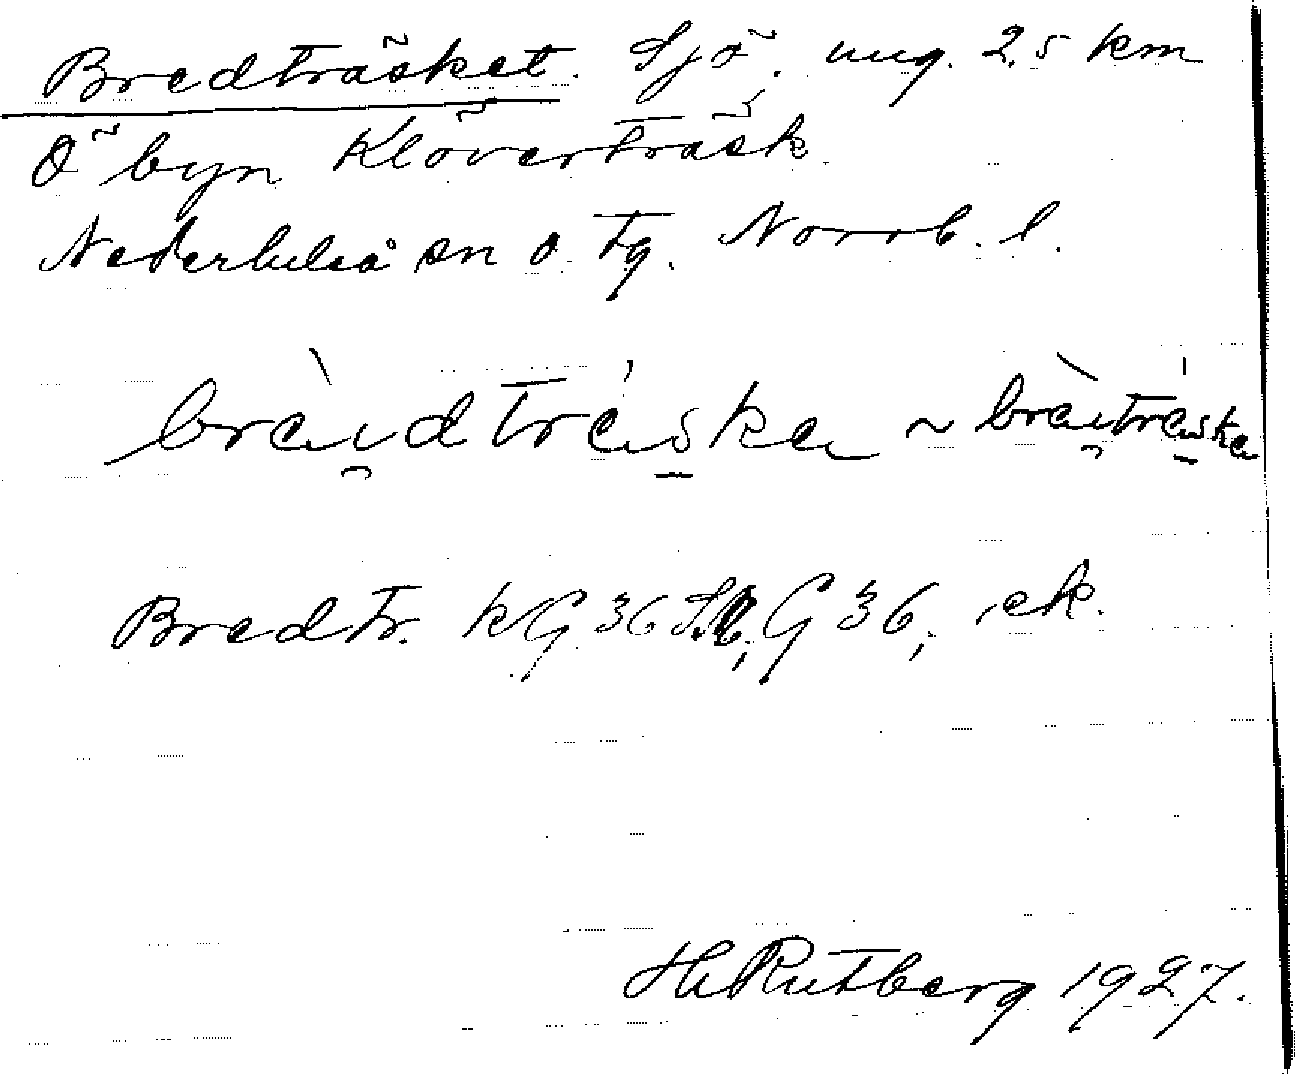 Bredträsket. Sjö, ung. 2,5 km
Ö byn Klöverträsk
Nederluleå sn o. tg. Norrb. l.
bræi̯dtrǽska ~ bræi̯trǽska
Bredtr. kG 36 G 36, ek.
H Rutberg 1927.